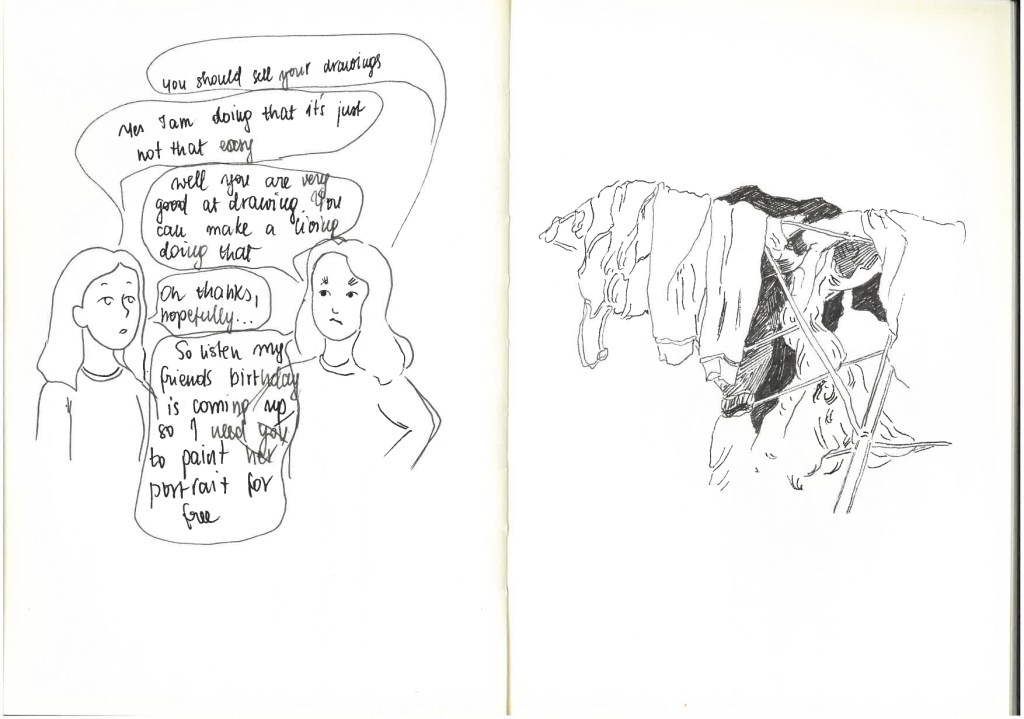 you should sell your drawings
Yes I am doing that it's just
not that easy
well you are very
good at drawing. You
can make a living
doing that
Oh thanks,
hopefully...
So listen my
friends birthday
is coming up
so I need you
to paint her
portrait for
free